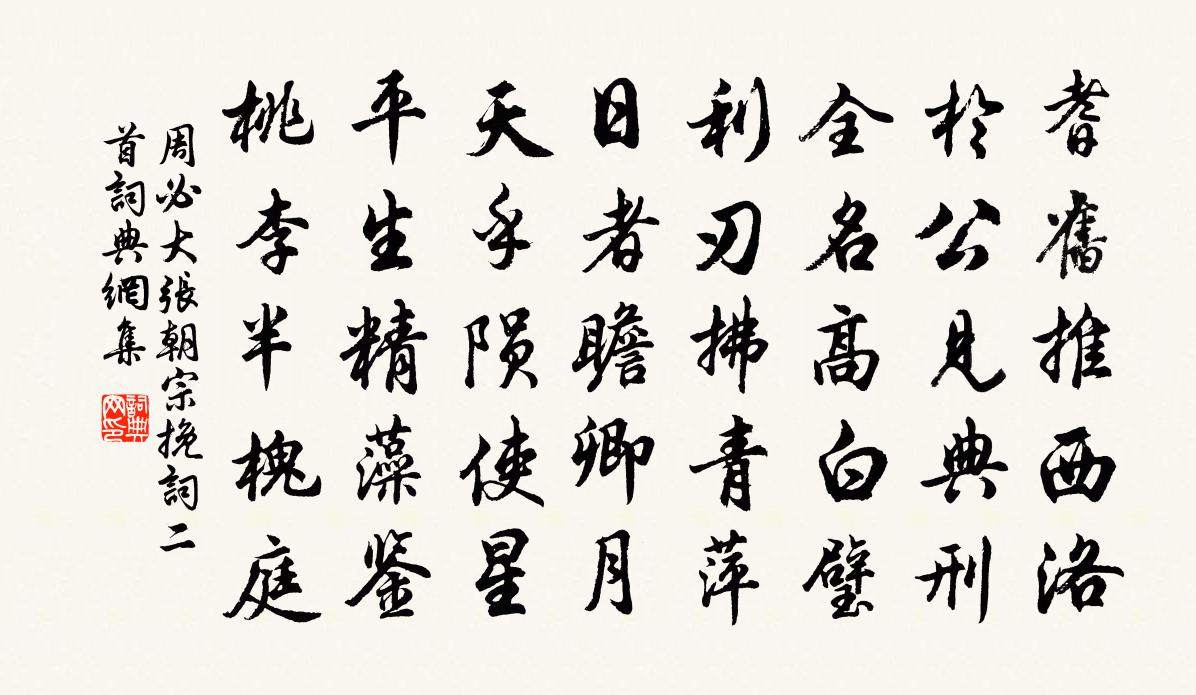 耆舊推西洛
於公見典刑
全名高白璧
利刃拂青萍
日者瞻卿月
天乎隕使星
平生精藻鉴
桃李半槐庭
周必大張朝宗挽詞二
首詞典網集
詞典网印